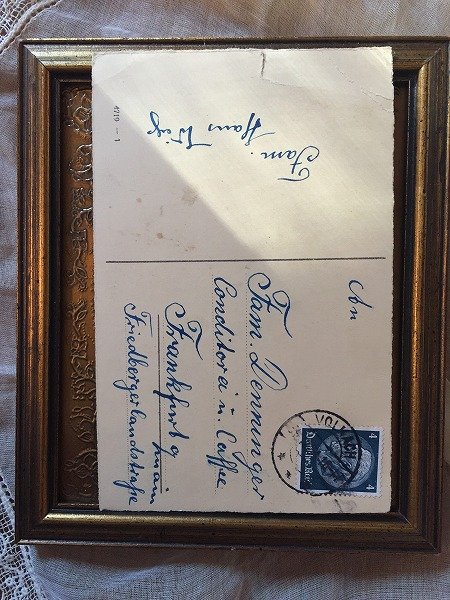 Fam.
Hans
An
Fam. Denninger
Conditorei u. Caffee
Frankfurt a
main
Friedbergerlandstraße
VOLKACH
4 4
Deutsches Reich